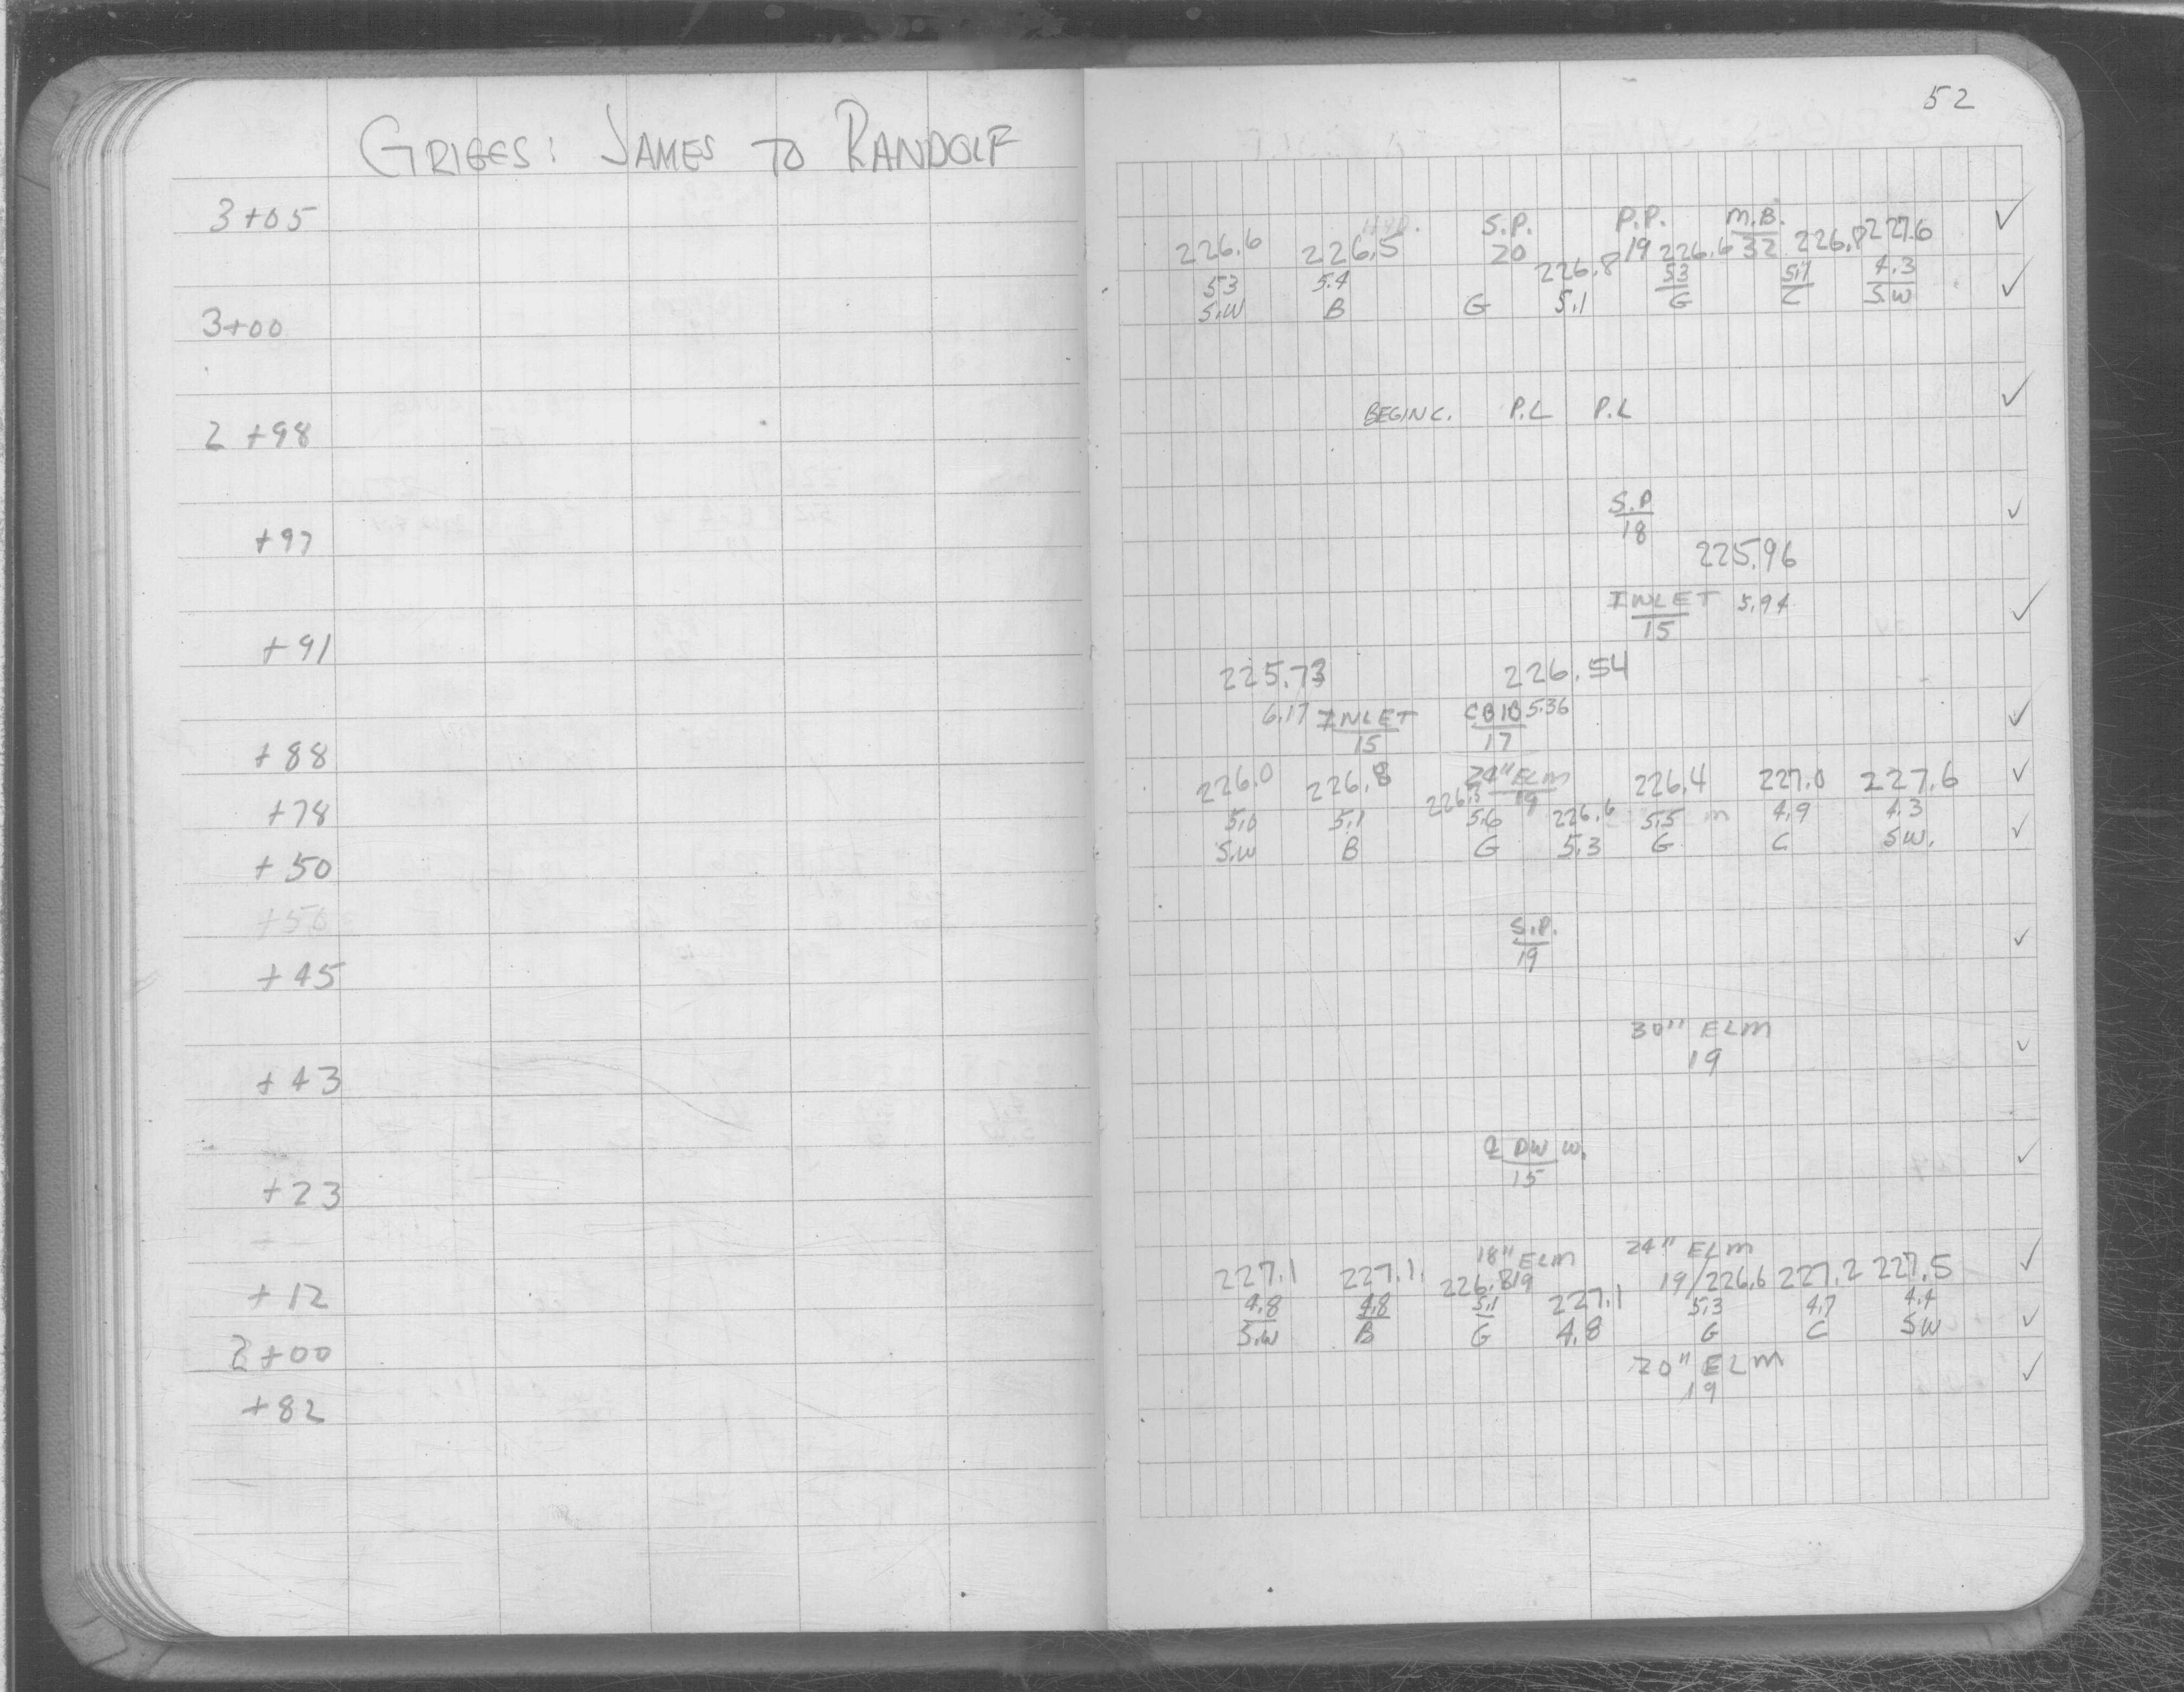 52
GRIGGS: JAMES TO RANDOLF
3+05
S.P. P.P. M.B. ✓
226.6 226.5 20 19 226.6 32 226.8 227.6
226.8
5.3 5.4 5.3 5.1 4.3 ✓
S.W B G 5.1 G C S.W
3+00
2+98
BEGIN C. P.L P.L ✓
+97
S.P ✓
18
225.96
+91
INLET 5.94 ✓
15
225.73 226.54
+88
6.17 INLET CB10 5.36 ✓
15 17
+78
24" ELM ✓
19
226.0 226.8 226.3 226.6 226.4 227.0 227.6
5.1 5.6 5.5 4.9 4.3
S.W B G 5.3 G C S.W. ✓
+50
+50
+45
S.P. ✓
19
+43
30" ELM ✓
19
+23
℄ DW W. ✓
15
+12
18" ELM 24" ELM ✓
227.1 227.1 226.8 19 227.1 19/226.6 227.2 227.5
4.8 4.8 5.1 5.3 4.7 4.4
S.W B G 4.8 G C SW ✓
2+00
+82
20" ELM ✓
19